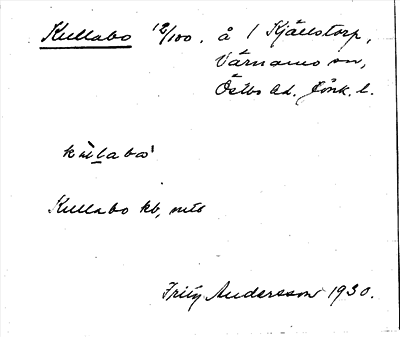 Kullabo 12/100. å 1 Kjällstorp,
Värnamo sn,
Östbo hd. Jönk. l.
Kullabo kb, mtb
Fritz Andersson 1930.